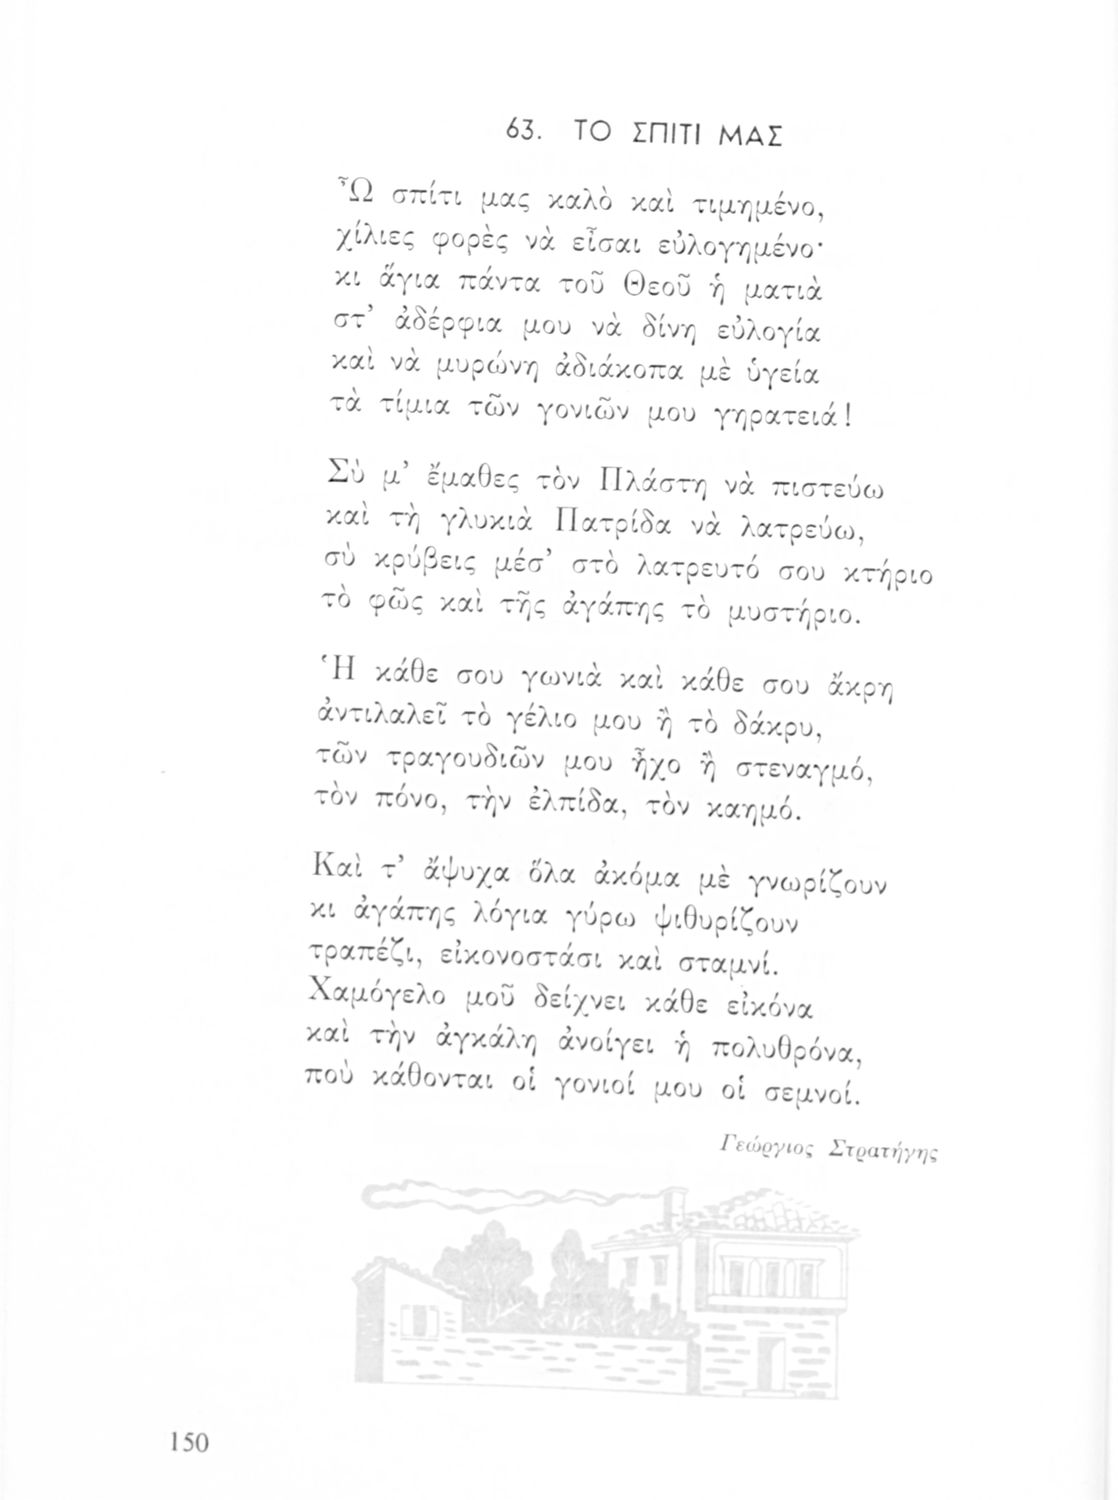 63. ΤΟ ΣΠΙΤΙ ΜΑΣ
Ὦ σπίτι μας καλὸ καὶ τιμημένο,
χίλιες φορὲς νὰ εἶσαι εὐλογημένο·
κι ἅγια πάντα τοῦ Θεοῦ ἡ ματιὰ
στ’ ἀδέρφια μου νὰ δίνη εὐλογία
καὶ νὰ μυρώνη ἀδιάκοπα μὲ ὑγεία
τὰ τίμια τῶν γονιῶν μου γηρατειά!
Σὺ μ’ ἔμαθες τὸν Πλάστη νὰ πιστεύω
καὶ τὴ γλυκιὰ Πατρίδα νὰ λατρεύω,
σὺ κρύβεις μέσ’ στὸ λατρευτό σου κτήριο
τὸ φῶς καὶ τῆς ἀγάπης τὸ μυστήριο.
Ἡ κάθε σου γωνιὰ καὶ κάθε σου ἄκρη
ἀντιλαλεῖ τὸ γέλιο μου ἢ τὸ δάκρυ,
τῶν τραγουδιῶν μου ἦχο ἢ στεναγμό,
τὸν πόνο, τὴν ἐλπίδα, τὸν καημό.
Καὶ τ’ ἄψυχα ὅλα ἀκόμα μὲ γνωρίζουν
κι ἀγάπης λόγια γύρω ψιθυρίζουν
τραπέζι, εἰκονοστάσι καὶ σταμνί.
Χαμόγελο μοῦ δείχνει κάθε εἰκόνα
καὶ τὴν ἀγκάλη ἀνοίγει ἡ πολυθρόνα,
ποὺ κάθονται οἱ γονιοί μου οἱ σεμνοί.
Γεώργιος Στρατήγης
150